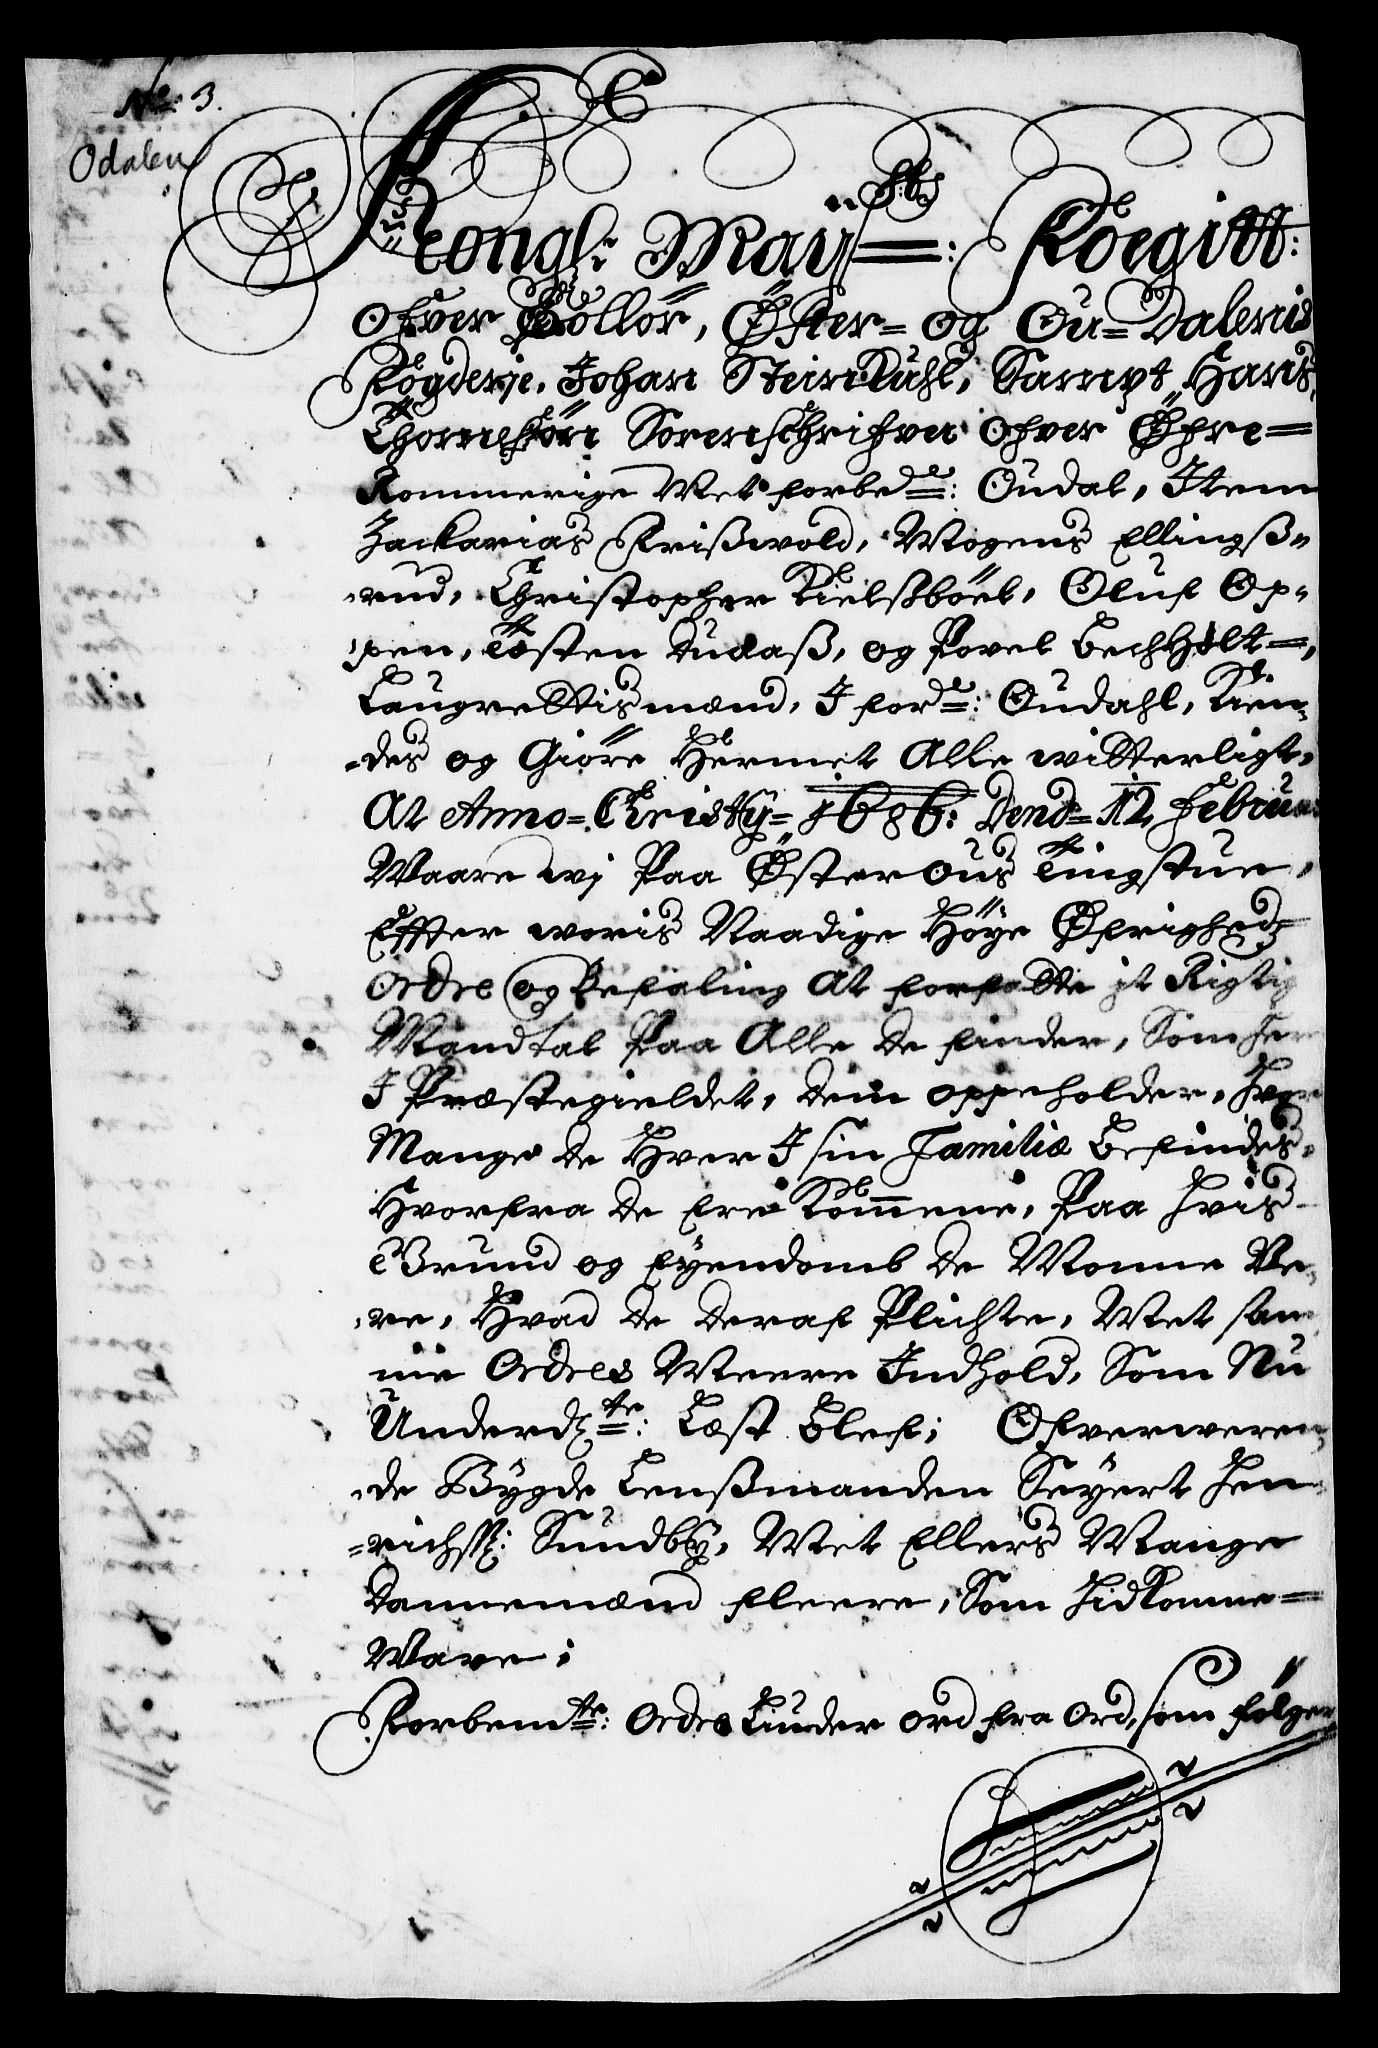 No: 3.
Odalen
Kongl: Maÿtts: Foegitt:
Ofver Sollør, Øster= og Ou=Dalens
Fögderje, Johan SteinKuhl, Sampt Hans
Thomesøn Sorenschrifver Ofver Øfre=
Rommerige Met forbede: Oudal, Item
Zackarias Frißwold, Mogens Ellingß=
=rud, Christopher Kielsböel, Oluf Op=
=pen, Tosten Duaaß, og Povel Bechholt=,
Laugrettismænd, I forde: Oudahl, Kien=
=des og Giöre Hermet Alle witterligt,
At Anno= Christÿ= 1686: Dend= 12 Februa:
Waare wj Paa Øster Ous Tingstue,
Effter woris Naadige Höÿe Øfrigheds
Ordre og Befaling At forfatte it Rigtig
Mandtal Paa Alle de finder, Som her
I Præstegieldet, dem oppeholder, hvor
Mange de Hver I sin Familiæ befindes,
Hvorfra de ere Kommene, Paa hvis
Grund og Eÿendomb de Monne We=
=re, Hvad de deraf Plichte, Met sam
me Ordres Meere Indhold, Som Nu
Underdte: Læst blef; Ofverweren=
=de Bÿgde Lenßmanden Seÿert Hen=
=richß: Sundbÿ, Met Ellers Mange
Dannemænd fleere, Som hidkomne=
Ware;
Forbemte: Ordre Liuder ord fra Ord, som følger